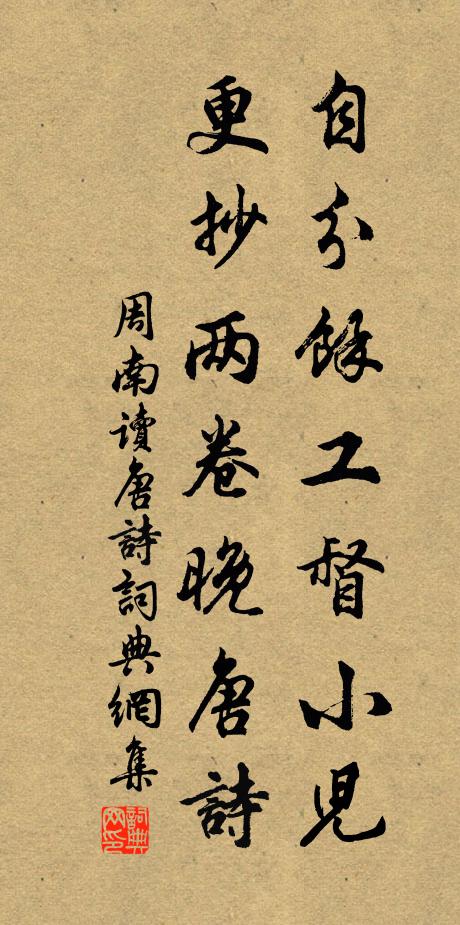 自分餘工督小児
更抄两卷晚唐詩
周南讀唐詩詞典網集
詞典
网印